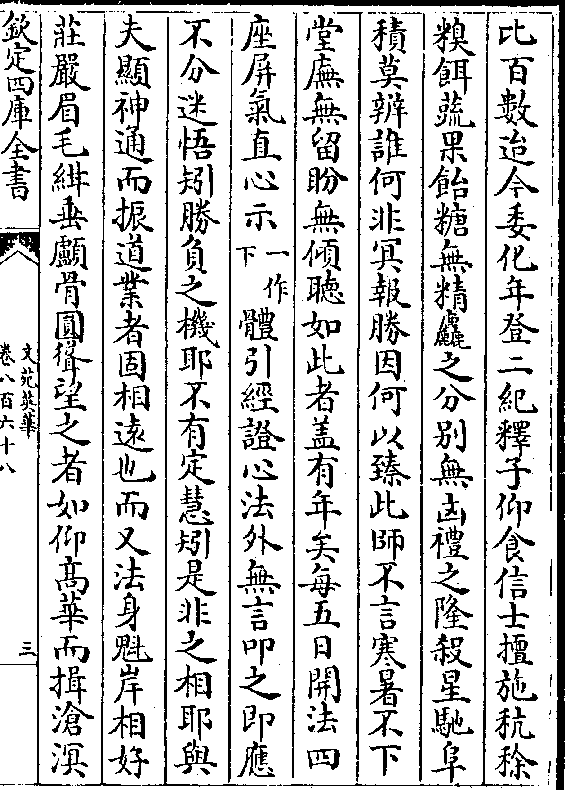 比百數迨今委化年登二紀釋子仰食信士擅施秔稌
糗餌蔬果飴糖無精麤之分別無凶禮之隆殺星馳阜
積莫辨誰何非冥報勝因何以臻此師不言寒暑不下
堂廡無留盼無傾聽如此者盖有年矣每五日開法四
座屏氣直心示一作下體引經證心法外無言叩之即應
不分迷悟矧勝負之機耶不有定慧矧是非之相耶與
夫顯神通而振道業者固相逺也而又法身魁岸相好
莊嚴眉毛紺垂顱骨圓聳望之者如仰髙華而揖滄溟
欽定四庫全書
文苑英華
卷八百六十八
三